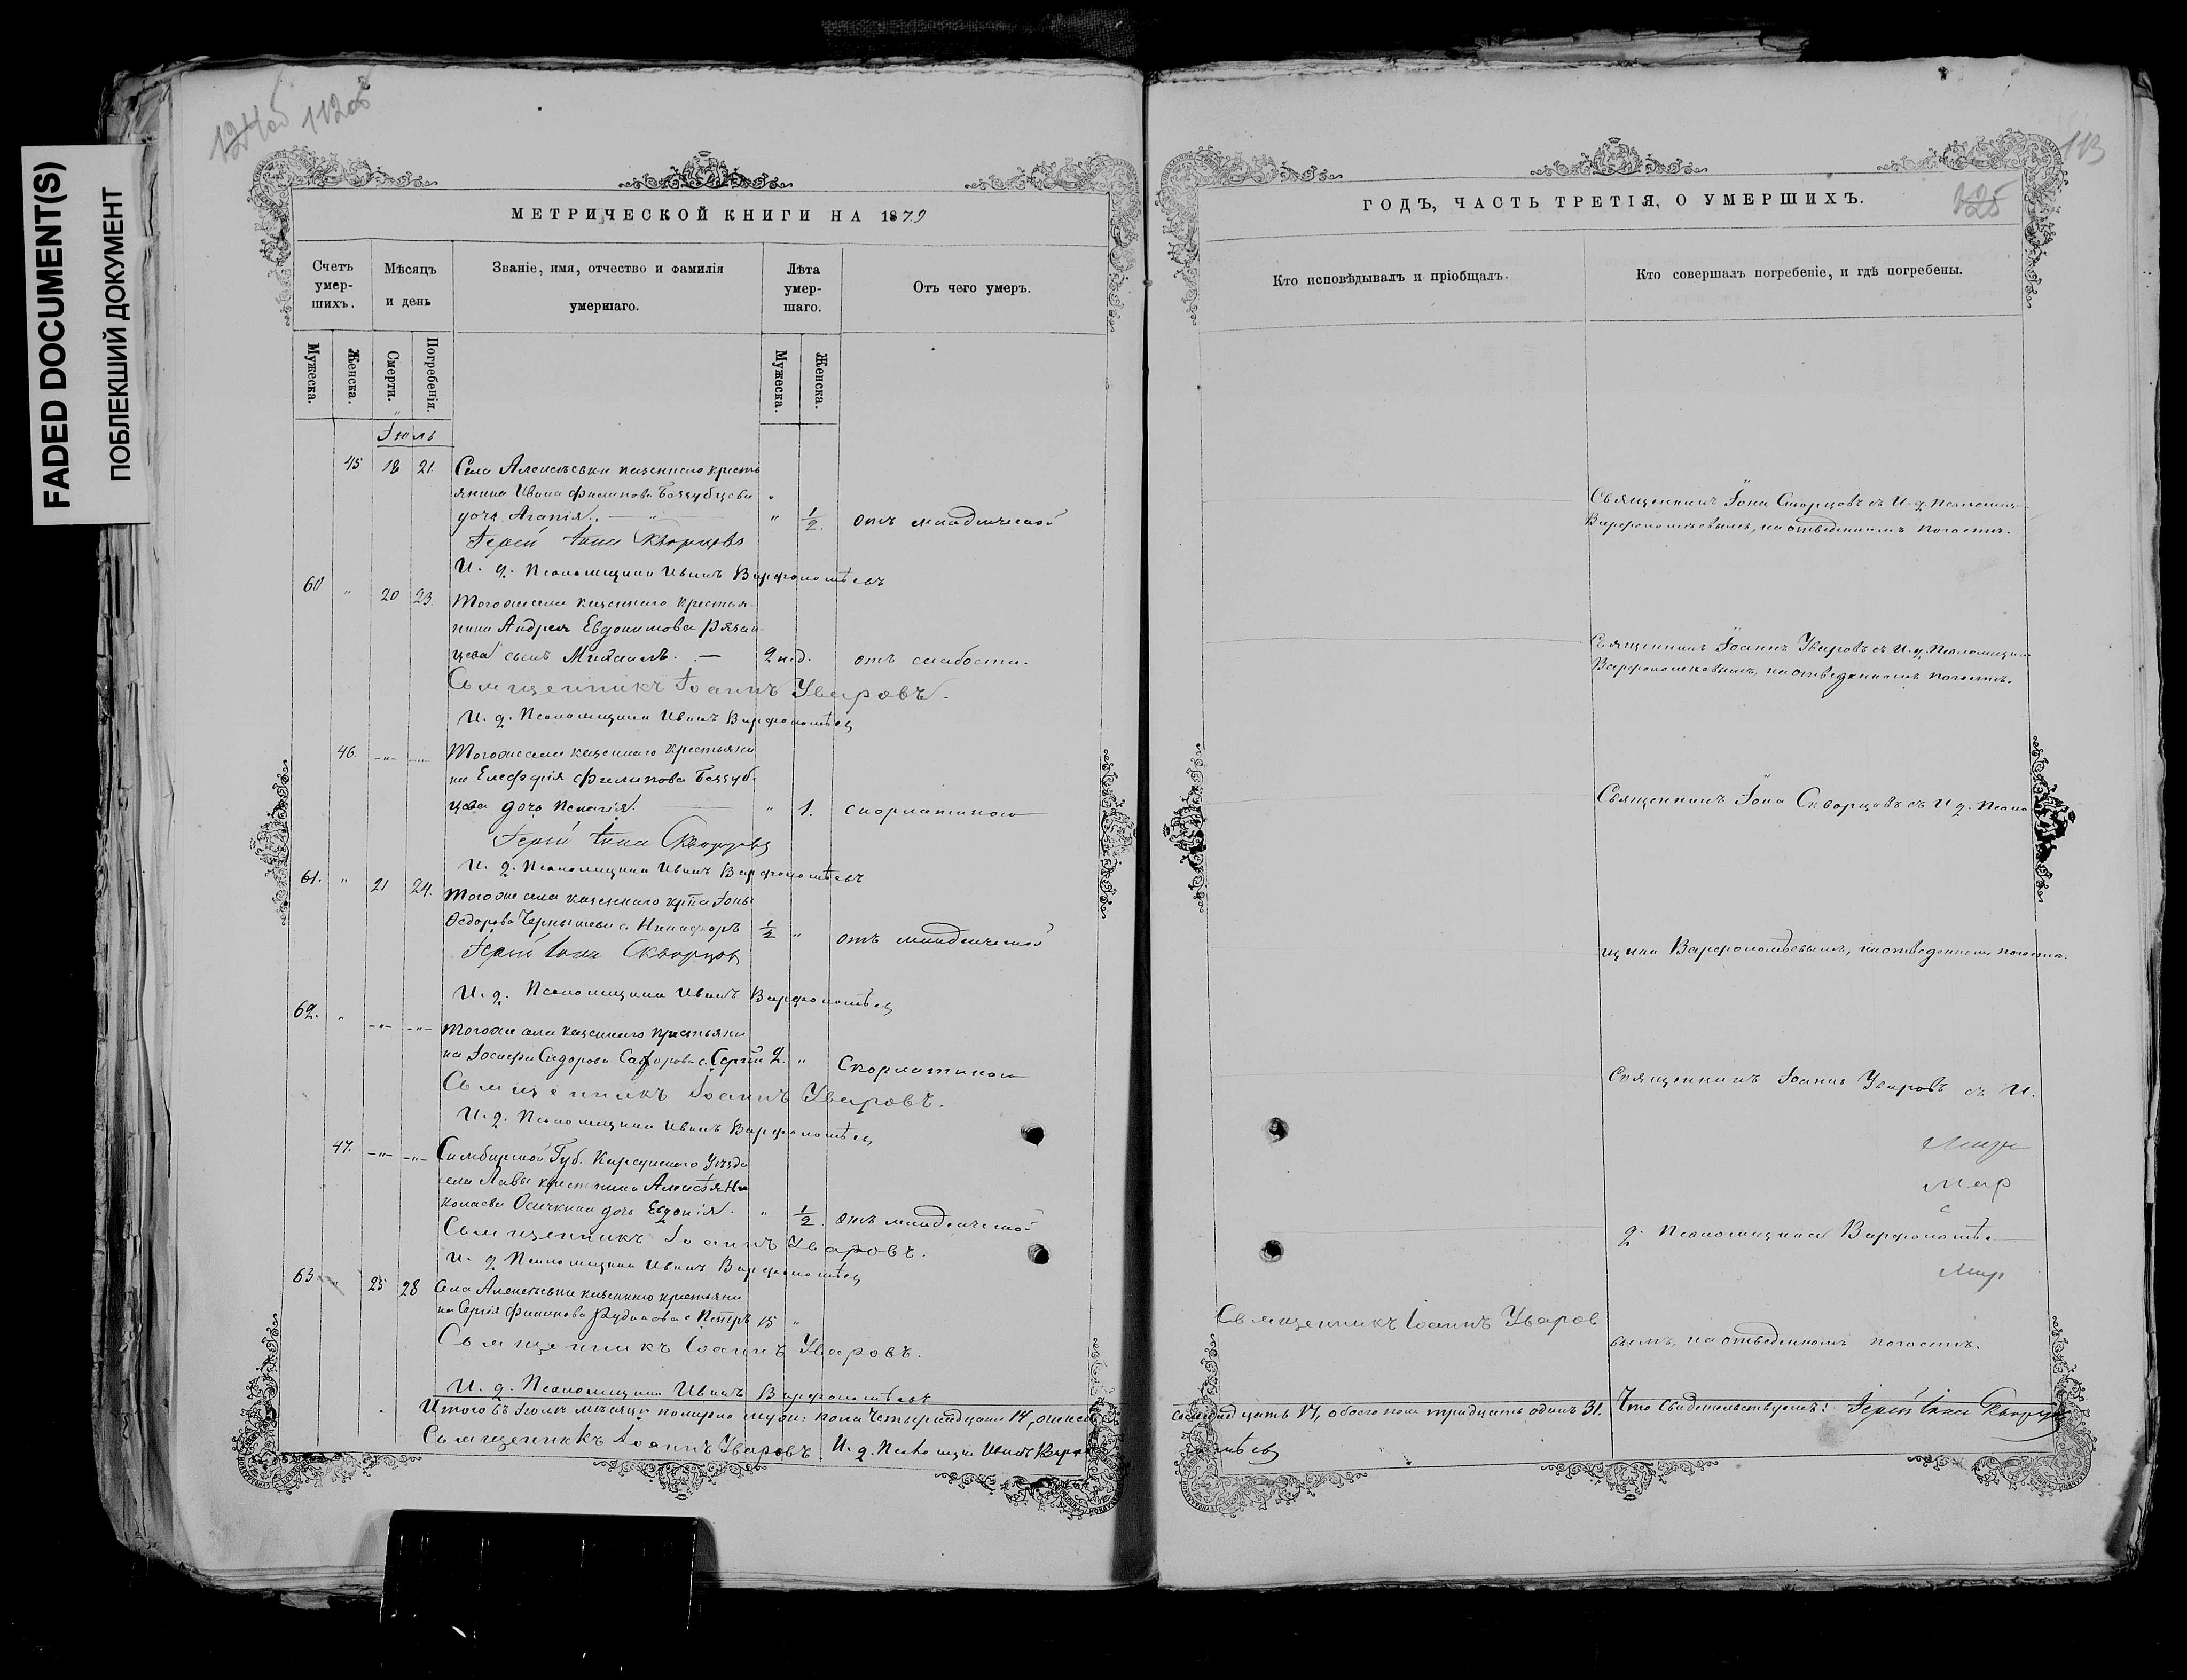 FADED DOCUMENT(S)
ПОБЛЕКШИЙ ДОКУМЕНТ
124об 112об
МЕТРИЧЕСКОЙ КНИГИ НА 1879
Счетъ умер-шихъ.
Мѣсяцъ и день
Званіе, имя, отчество и фамилія умершаго.
Лѣта умер-шаго.
Отъ чего умеръ.
Мужеска.
Женска.
Смерти.
Погребенія.
Мужеска.
Женска.
Іюль
45 18 21. Села Алексѣевки казеннаго кресть
янина Ивана Филипова Беззубцева "
дочь Агапія. — " — " 1/2. отъ младенческой
Іерей Іона Скворцовъ
И. д. Псаломщика Иванъ Варфоломѣевъ
60 " 20 23. Тогоже села казеннаго крестья-
нина Андрея Евдокимова Рязан-
цева сынъ Михаилъ. — 2 нед. отъ слабости.
Священникъ Іоаннъ Уваровъ.
И. д. Псаломщика Иванъ Варфоломѣев
46. -"- -"- Тогоже села казеннаго крестьяни
на Елефѳрія Филипова Беззуб-
цева дочь Пелагія. — " 1. скорлатиною
Іерей Іона Скворцовъ
И. д. Псаломщика Иванъ Варфоломѣевъ
61. " 21 24. Тогоже села казеннаго кр-на Іоны
Ѳедорова Чернышева с. Никифоръ 1/2 " отъ младенческой
Іерей Іона Скворцов
И. д. Псаломщика Иванъ Варфоломѣев
62. " -"- -"- Тогоже села казеннаго крестьяни
на Іосифа Сидорова Сафорова с. Сергій 2. " Скорлатиною
Священникъ Іоаннъ Уваровъ.
И. д. Псаломщика Иванъ Варфоломѣев
47. -"- -"- Симбирской Губ. Карсунскаго Уѣзда
села Лавы крестьянина Алексѣя Ни
колаева Осичкина дочь Евдокія. " 1/2. отъ младенческой
Священникъ Іоаннъ Уваровъ.
И. д. Псаломщика Иванъ Варфоломѣев
63 " 25 28 Села Алексѣевки казеннаго крестьяни
на Сергія Филипова Рудакова с Петръ 15 "
Священникъ Іоаннъ Уваровъ.
И. д. Псаломщика Иванъ Варфоломѣевъ
Итого въ Іюлѣ мѣсяцѣ померло муж: пола четырнадцать 14, женска
Священникъ Іоаннъ Уваровъ И. д. Псаломщика Иванъ Варфо
113
125
ГОДЪ, ЧАСТЬ ТРЕТІЯ, О УМЕРШИХЪ.
Кто исповѣдывалъ и пріобщалъ.
Кто совершалъ погребеніе, и гдѣ погребены.
Священникъ Іона Скворцовъ съ И. д. Псаломщ.
Варфоломѣевымъ, на отведенномъ погостѣ.
Священникъ Іоаннъ Уваровъ съ И. д. Псаломщик
Варфоломеевымъ, на отведенномъ погостѣ.
Священникъ Іона Скворцовъ съ И д. Псало
мщика Варфоломѣевымъ, на отведенномъ погостѣ.
Священникъ Іоаннъ Уваровъ съ И.
д. Псаломщика Варфоломѣе
Священникъ Іоаннъ Уваров
вымъ, на отведенномъ погостѣ.
семнадцать 17, обоего пола тридцать одинъ 31. Что свидетельствуемъ: Іерей Іона Скворцов
ломѣев